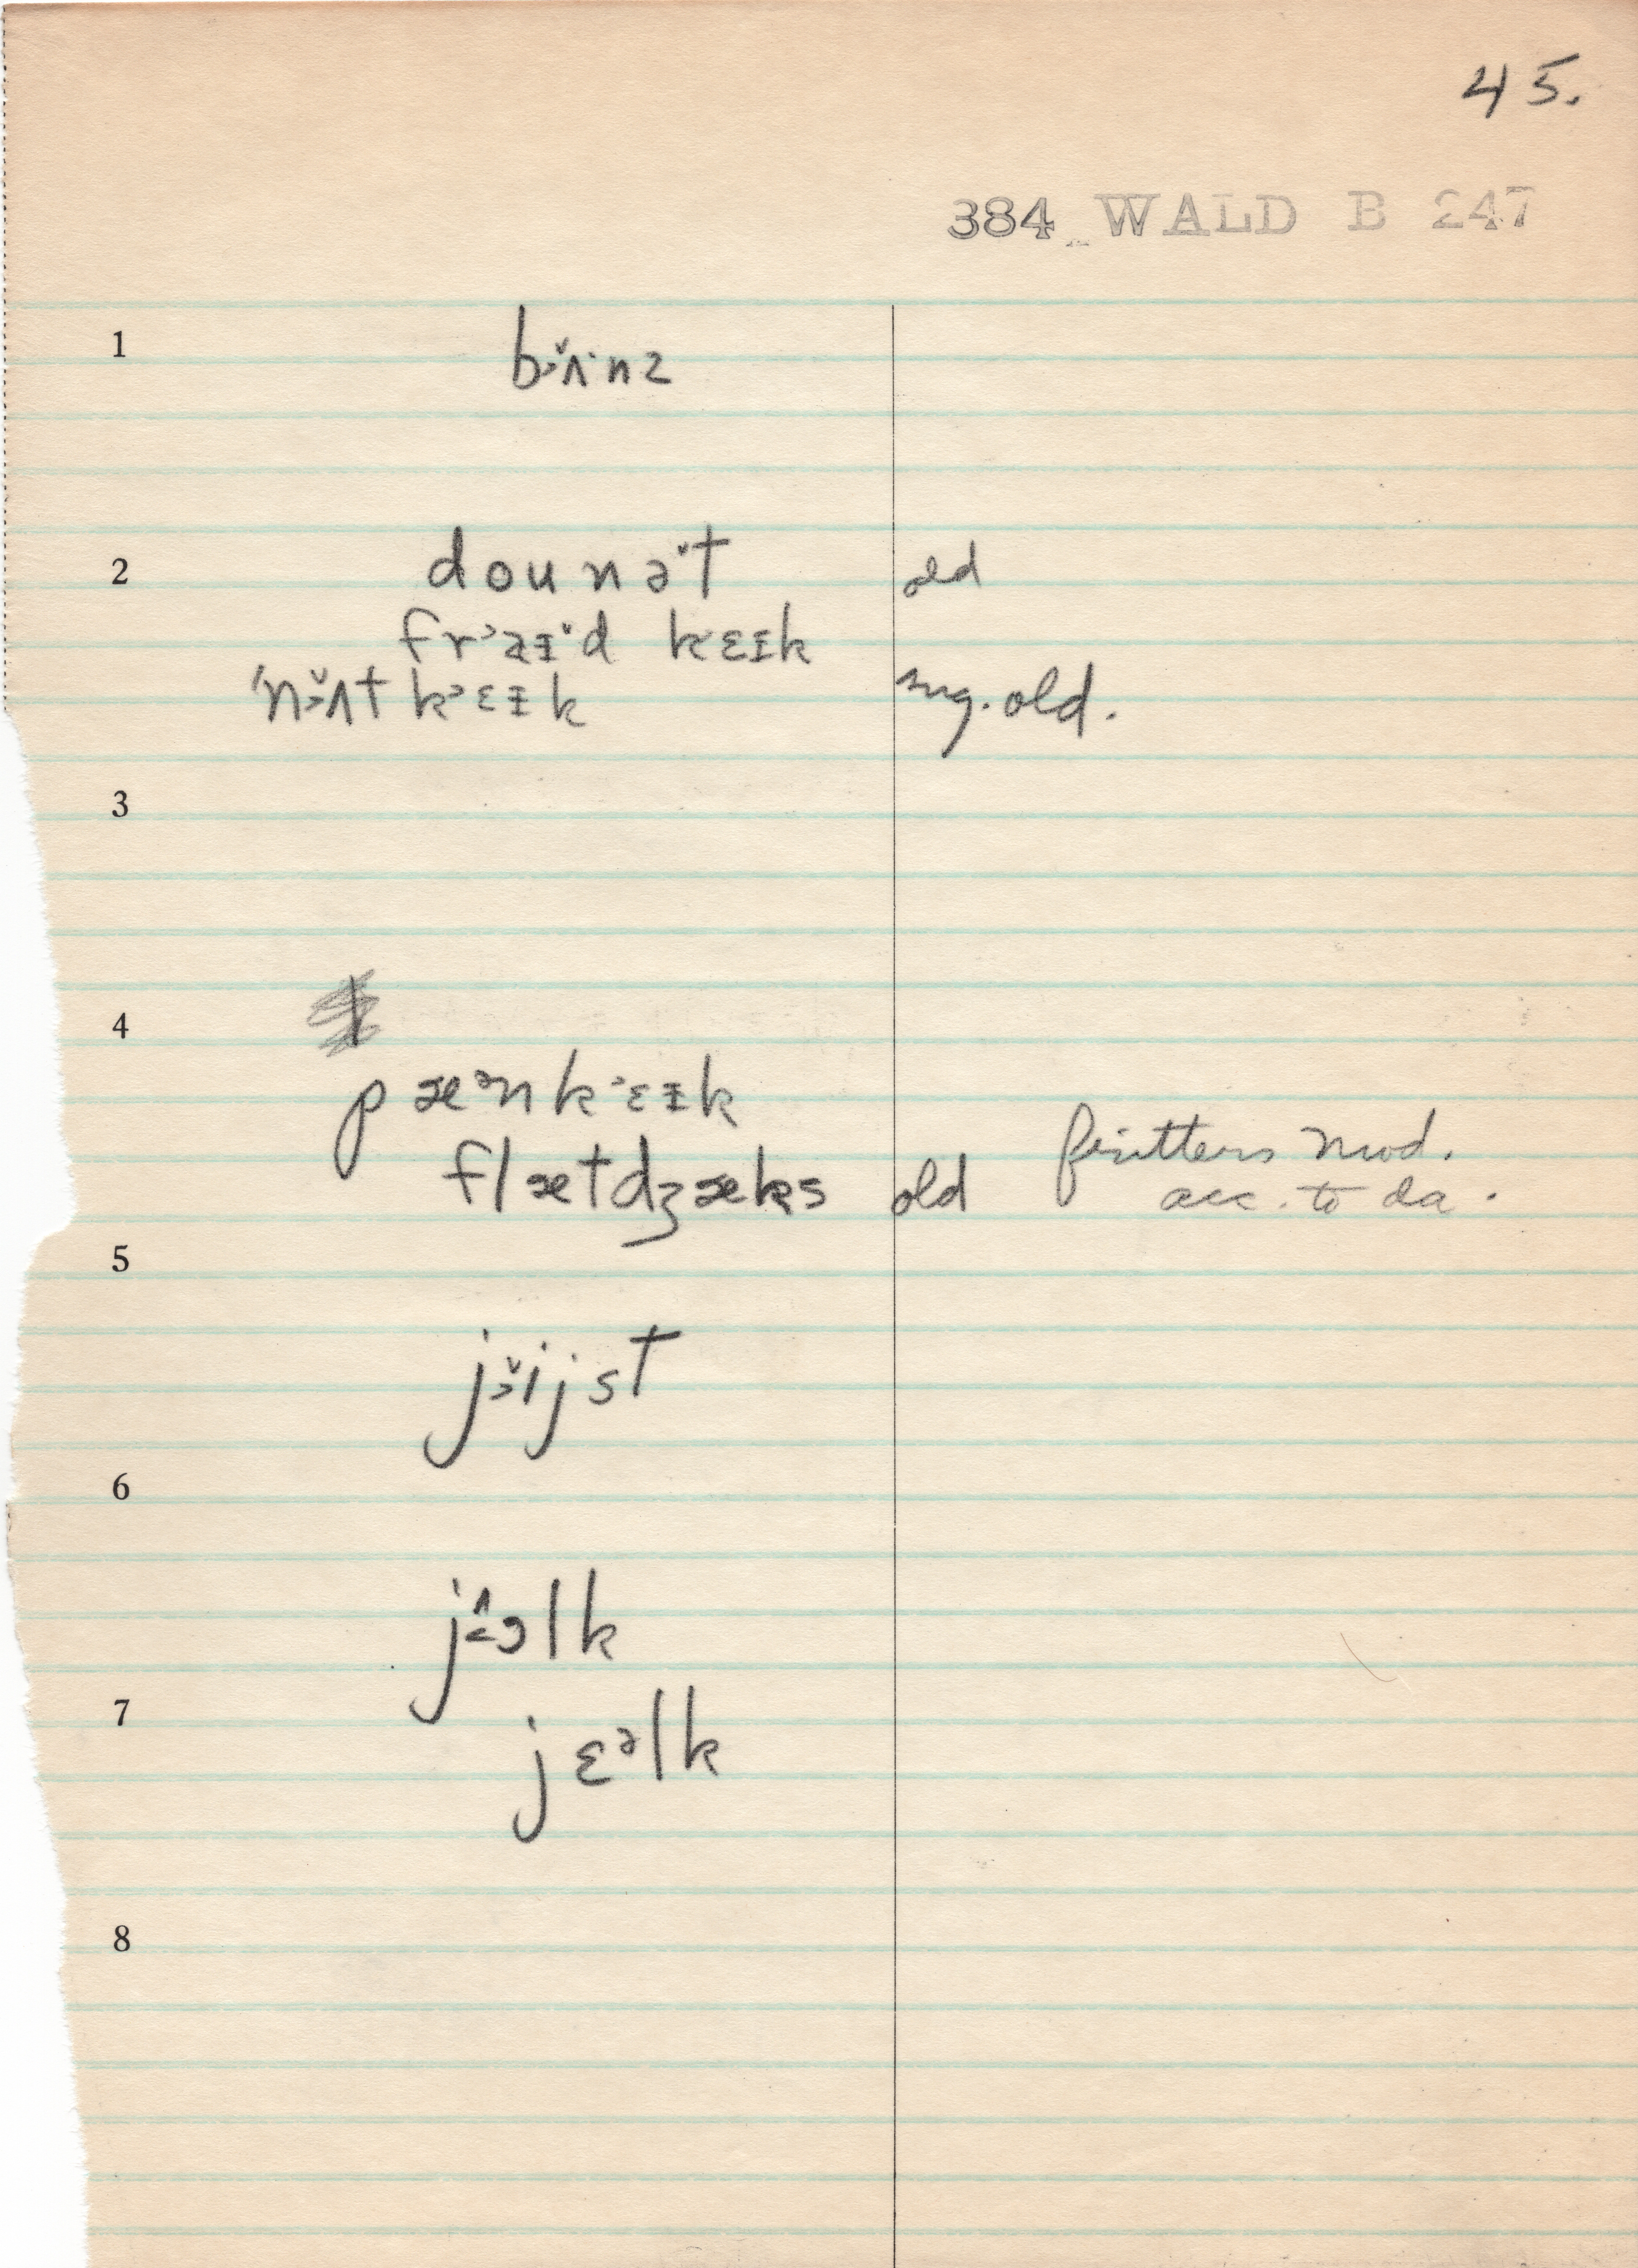 45.
384 WALD B 247
1
bɔ˃̌ʌ·nz
2
dounə̌t old
frˈaᵻ·d kɛɪk
'nɔ˃̌ʌt kˈɛᵻk sug. old.
3
4
pæᵊnkˈɛᵻk
flætdʒæks old fritters mod.
acc. to da.
5
jɔ˃̌ijst
6
jɔ˂̂lk
7
jɛᵊlk
8